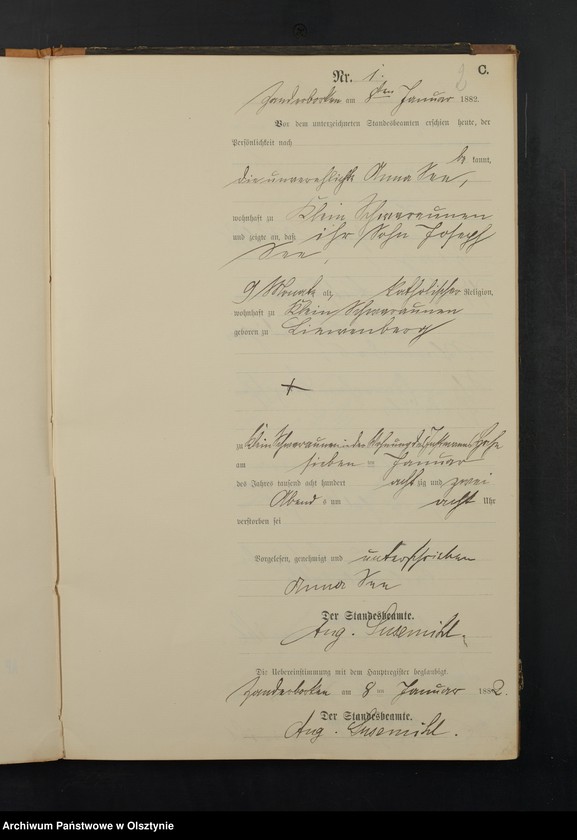 C.
Nr. 1.
Zanderborken am 8ten Januar 1882.
Vor dem unterzeichneten Standesbeamten erschien heute, der
Persönlichkeit nach
be kannt,
die unverehelichte Anna See,
wohnhaft zu Klein Schwaraunen
und zeigte an, daß ihr Sohn Joseph
See,
9 Monate alt, katholischer Religion,
wohnhaft zu Klein Schwaraunen
geboren zu Liewenberg
zu Klein Schwaraunen in der Wohnung des Instmanns
am sieben ten Januar
des Jahres tausend acht hundert acht zig und zwei
Abend s um acht Uhr
verstorben sei
Vorgelesen, genehmigt und unterschrieben
Anna See
Der Standesbeamte.
Aug. Susemihl.
Die Uebereinstimmung mit dem Hauptregister beglaubigt.
Zanderborken am 8 ten Januar 1882.
Der Standesbeamte.
Aug. Susemihl.
Archiwum Państwowe w Olsztynie